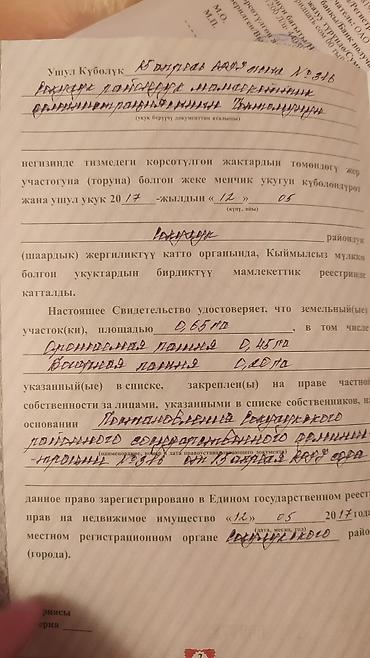 М.О.
М.П.
Ушул Күбөлүк 15 апрель 2009 жыла № 316
Сокулук райондук мамлекеттик
администрациянын Токтомунун
(укук берүүчү документтин аталышы)
негизинде тизмедеги көрсөтүлгөн жактардын төмөндөгү жер
участогуна (торуна) болгон жеке менчик укугун күбөлөндүрөт
жана ушул укук 20 17 -жылдын « 12 » 05
(күнү, айы)
Сокулук райондун
(шаардык) жергиликтүү катто органында, Кыймылсыз мүлккө
болгон укуктардын бирдиктүү мамлекеттик реестринде
катталды.
Настоящее Свидетельство удостоверяет, что земельный(ые)
участок(ки), площадью 0,65 га , в том числе
Орошаемая пашня 0,45 га
Богарная пашня 0,20 га
указанный(ые) в списке, закреплен(ы) на праве частно
собственности за лицами, указанными в списке собственников, на
основании Постановления Сокулукского
районного государственного админи-
страции № 316 от 15 апреля 2009 года
(наименование, номер и дата правоустанавливающего документа)
данное право зарегистрировано в Едином государственном реест
прав на недвижимое имущество « 12 » 05 20 17 года
(дата, месяц, год)
местном регистрационном органе Сокулукского райо
(города).
7